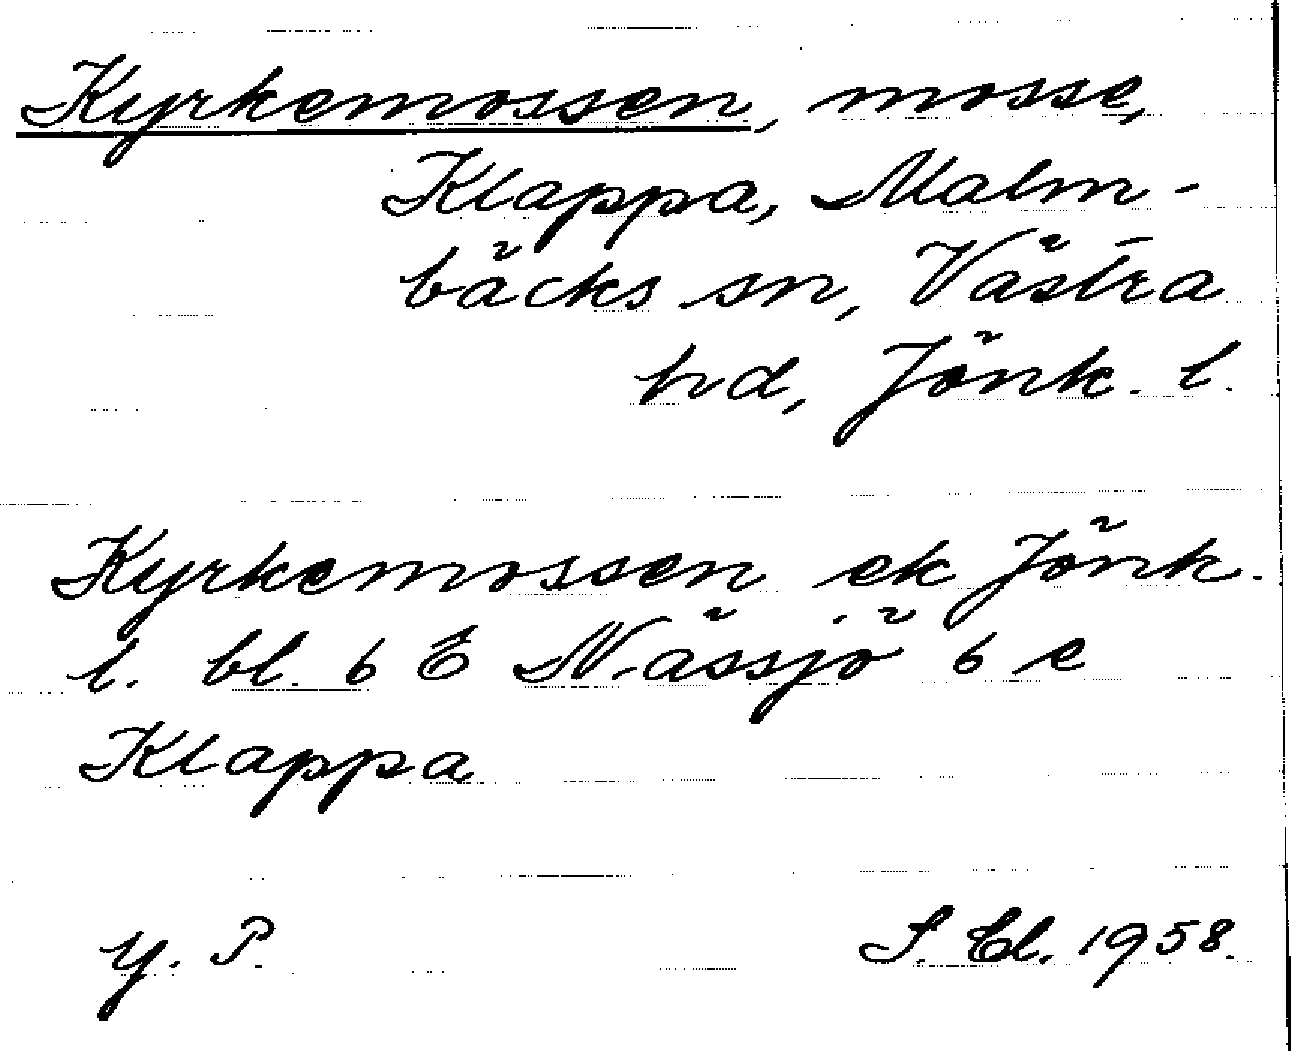 Kyrkemossen, mosse,
Klappa, Malm-
bäcks sn, Västra
hd, Jönk. l.
Kyrkemossen ek Jönk.
l. bl. 6 E Nässjö 6 e
Klappa
y. P. S. Cl. 1958.